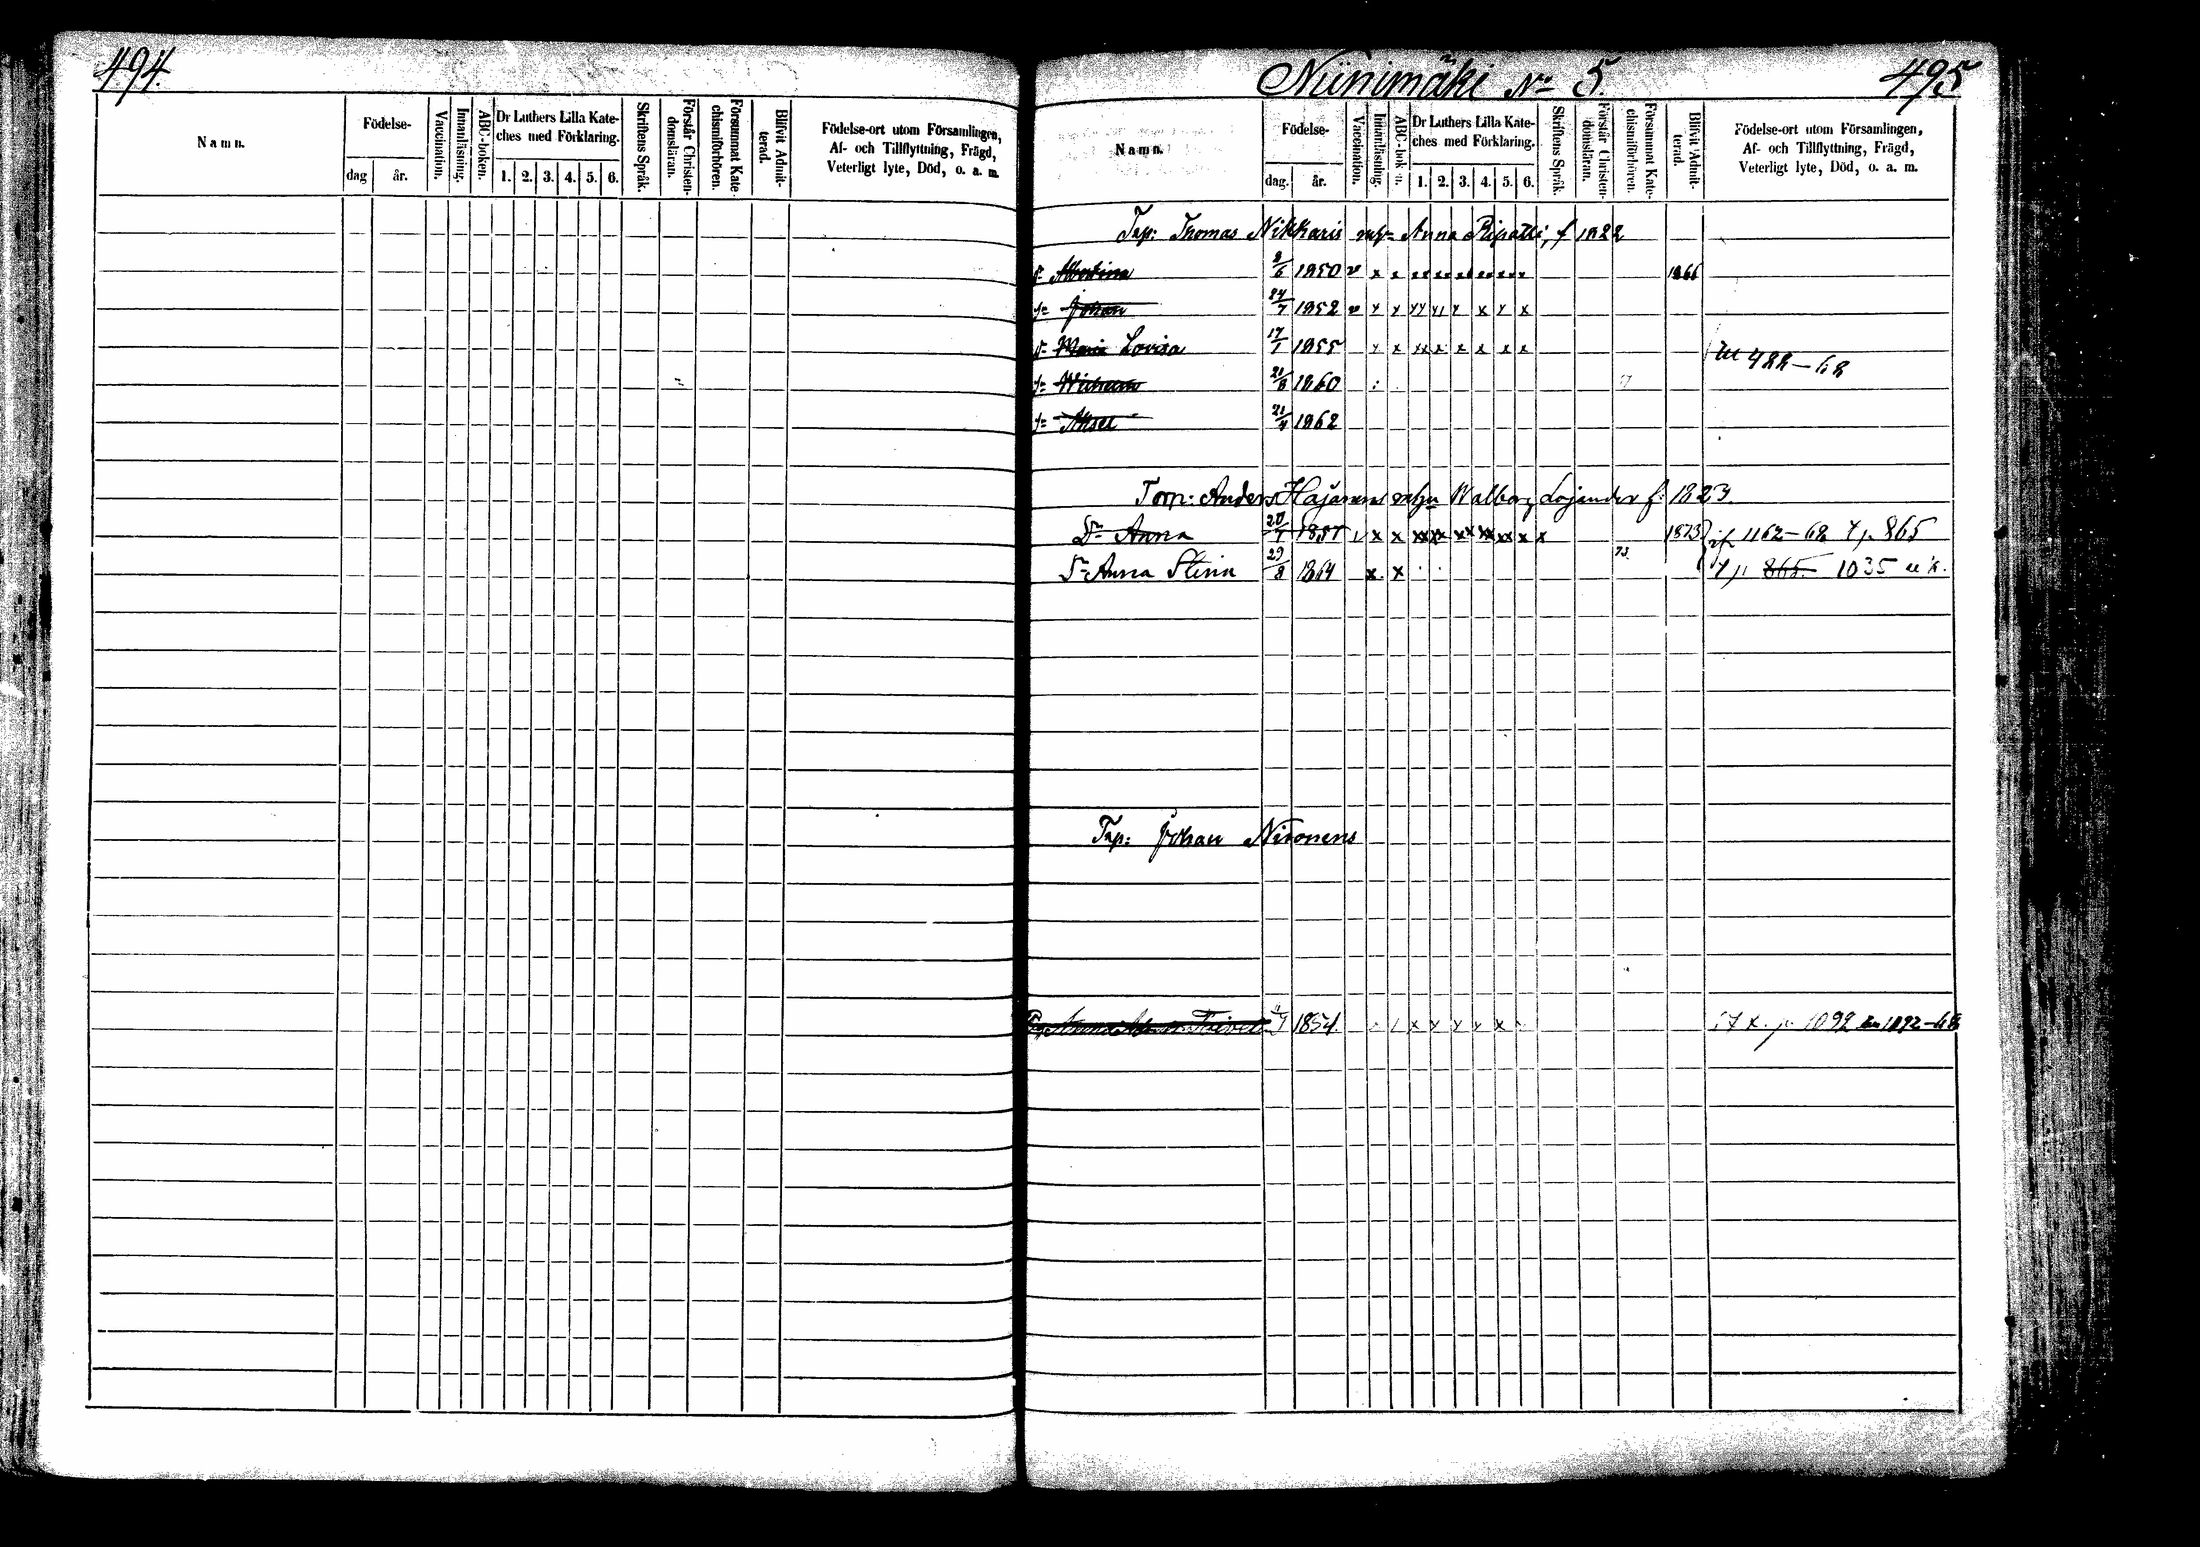 494.
Namn.
Födelse-
dag
år.
Vaccination.
Innanläsning.
ABC-boken.
Dr Luthers Lilla Kate-
ches med Förklaring.
1. 2. 3. 4. 5. 6.
Skriftens Språk.
Förstår Christen-
domsläran.
Försummat Kate-
chismiförhören.
Blifvit Admit-
terad.
Födelse-ort utom Församlingen,
Af- och Tillflyttning, Frägd,
Veterligt lyte, Död, o. a. m.
Niinimäki No 5. 495
Namn.
Födelse-
dag.
år.
Vaccination.
Innanläsning.
ABC-boken.
Dr Luthers Lilla Kate-
ches med Förklaring.
1. 2. 3. 4. 5. 6.
Skriftens Språk.
Förstår Christen-
domsläran.
Försummat Kate-
chismiförhören.
Blifvit Admit-
terad.
Födelse-ort utom Församlingen,
Af- och Tillflyttning, Frägd,
Veterligt lyte, Död, o. a. m.
Thomas Nikkaris Anna Ripatti, f 1822
Albertina 1850 v x x 1866
Johan 24/7 1852 v x x
Maria Lovisa 17/1 1855 x x x x x x
488-68
21/8 1860
21/4 1862
Torp: Anders Hajanens Walborg Lojander f: 1823
Dr Anna 20/1 1857 x x x x x x 1873 1162-68 p 865
Dr Anna Stina 29/8 1864 x x 73 865 1035
Johan Nironens
Anna 1854 x x x x x 1092 1092-68